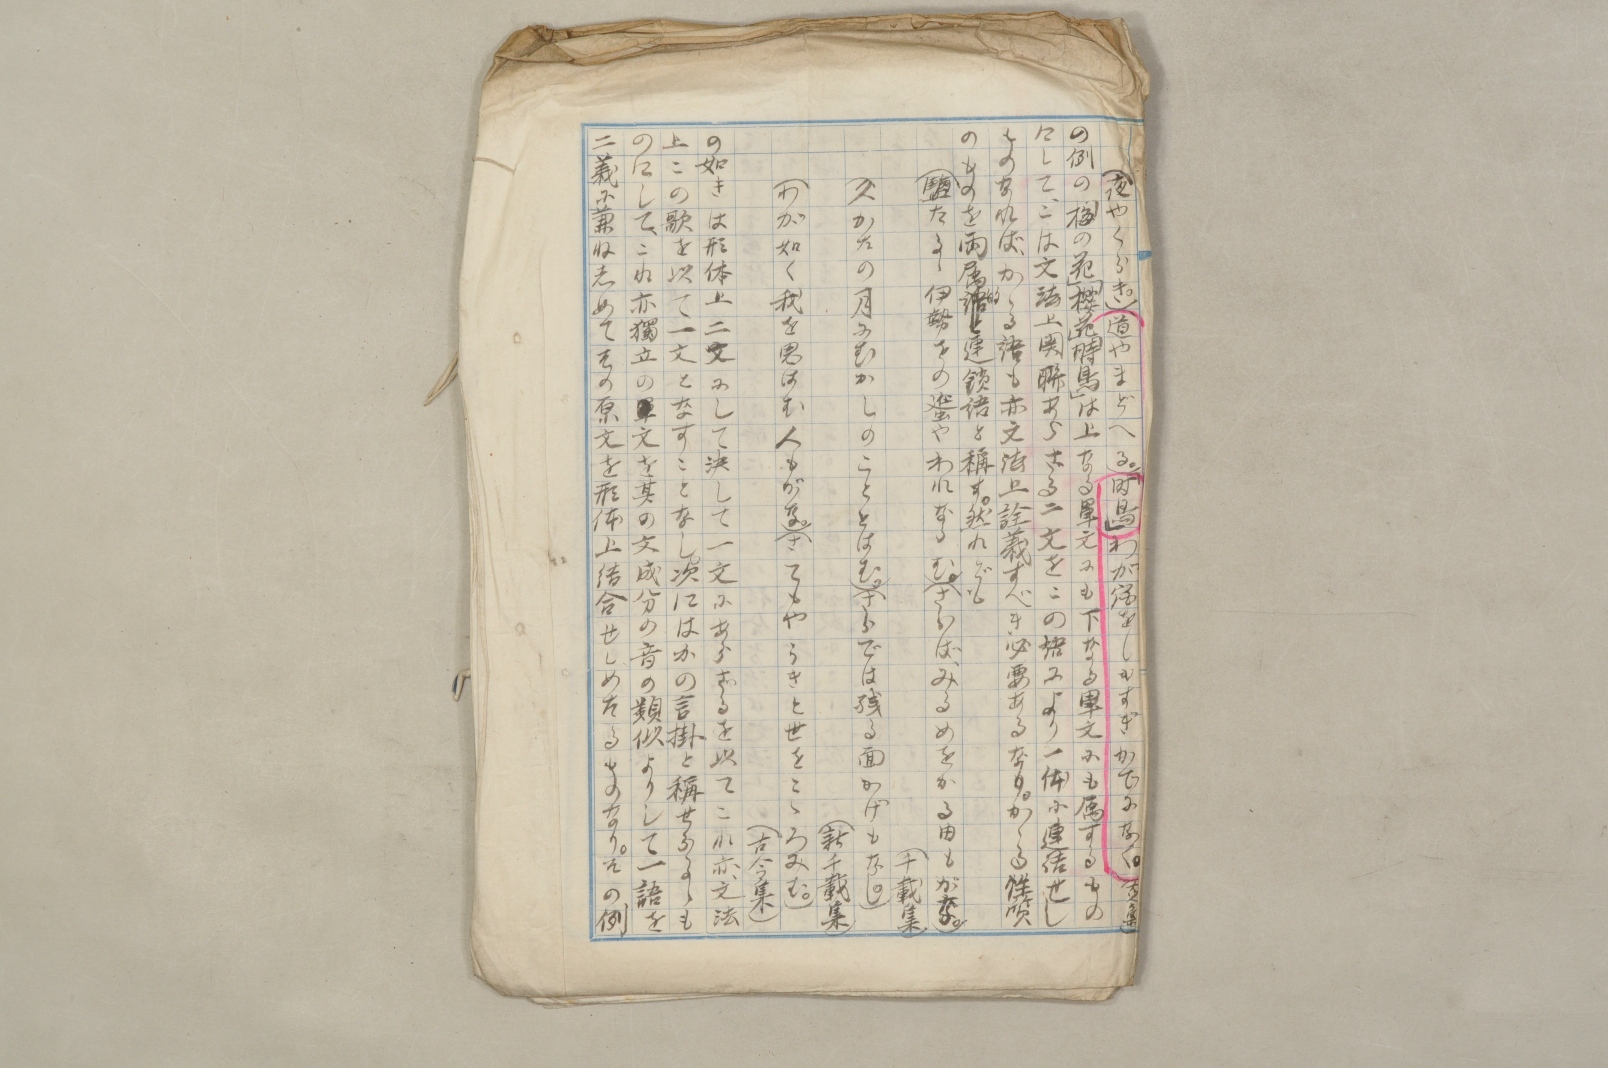 (夜やくらき)(道やまどへる。)「時鳥」わがやどをしもすぎがてになく。(古今集)
の例の「梅の花」「桜花」「時鳥」は上なる単文にも下なる単文にも属するもの
にして、こは文法上関聯あらざる二文をこの語により一体に連結せし
ものなれば、かゝる語も亦文法上詮義すべき必要あるなり。かゝる性質
のものを両属的連鎖語と称す。然れども
(鹽たるゝ伊勢をの蜑やわれならむ。)(さらばみるめをかる由もがな。)
(千載集)
久かたの月にむかしのこととはむ。)(さらでは残る面かげもなし。)
(新千載集)
(わが如く我を思はむ人もがな。)(さてもやうきと世をこゝろみむ。)
(古今集)
の如きは形体上二文にして決して一文にあらざるを以てこれ亦文法
上この歌を以て一文となすことなし。次にはかの言掛と称せらるゝも
のにして、これ亦獨立の単文を其の文成分の音の類似よりして一語を
二義に兼ねしめてその原文を形体上結合せしめたるものなり。その例